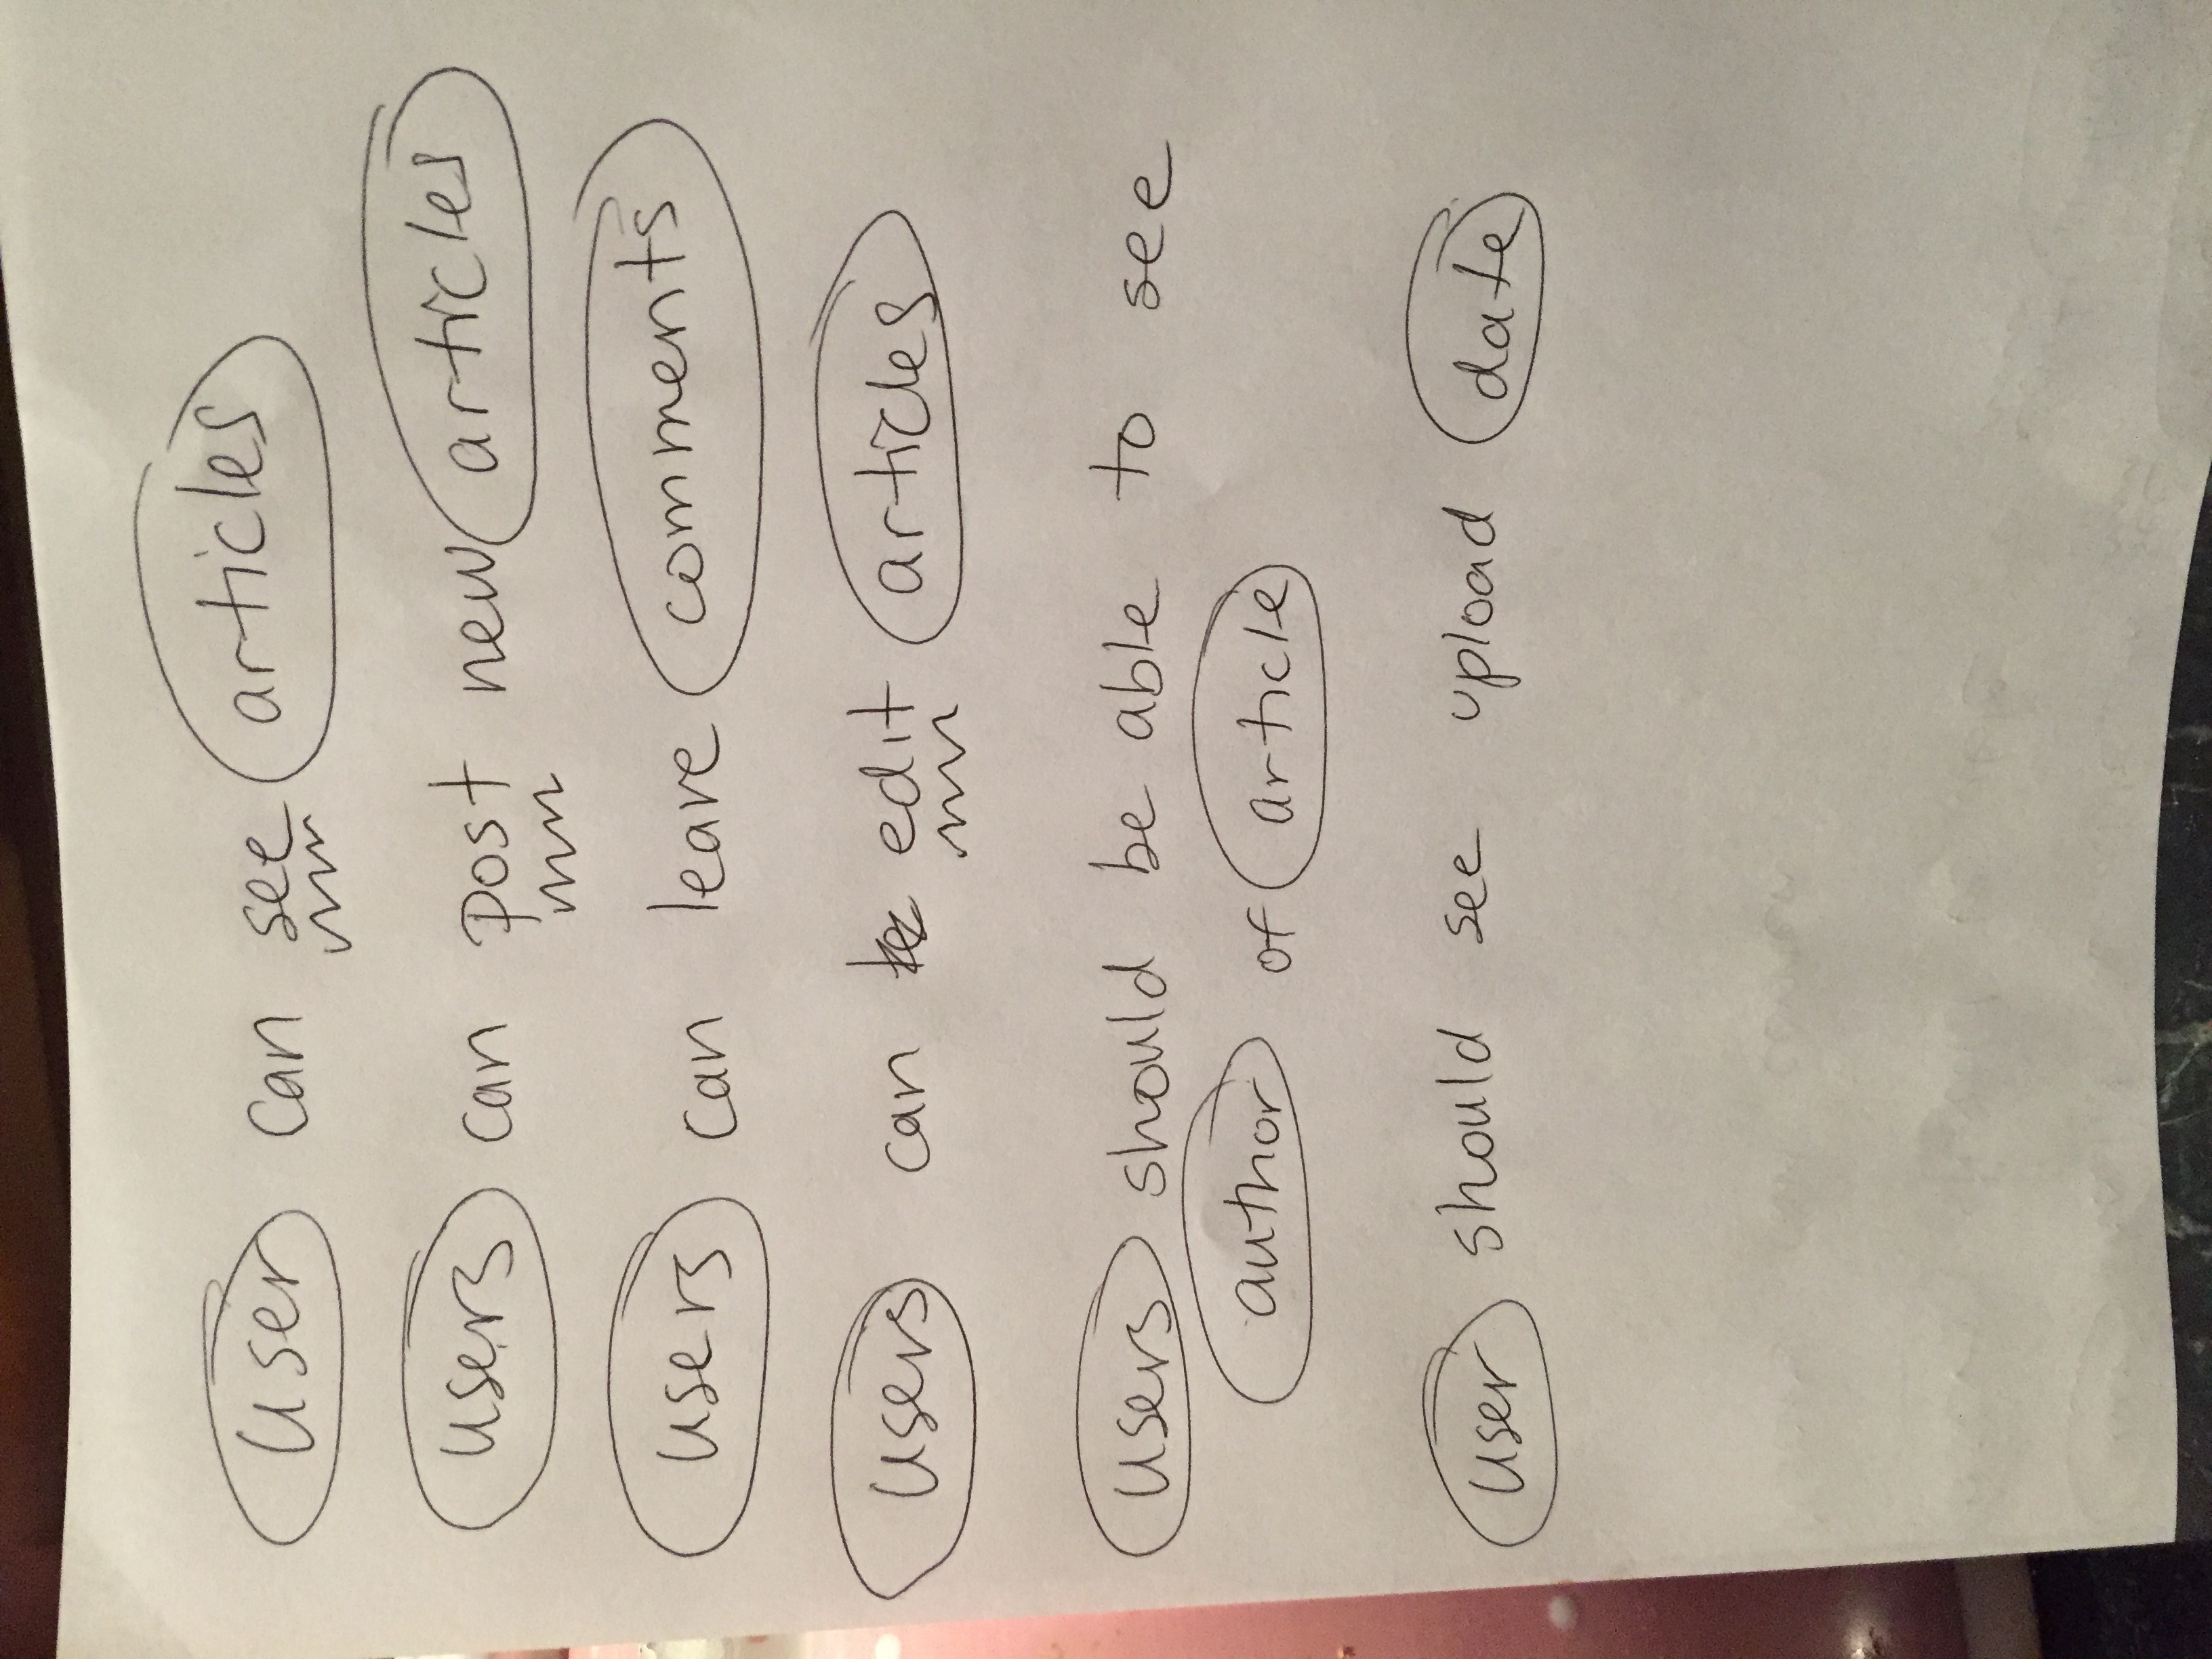 user can see articles
users can post new articles
users can leave comments
users can edit articles
users should be able to see
author of article
user should see upload date